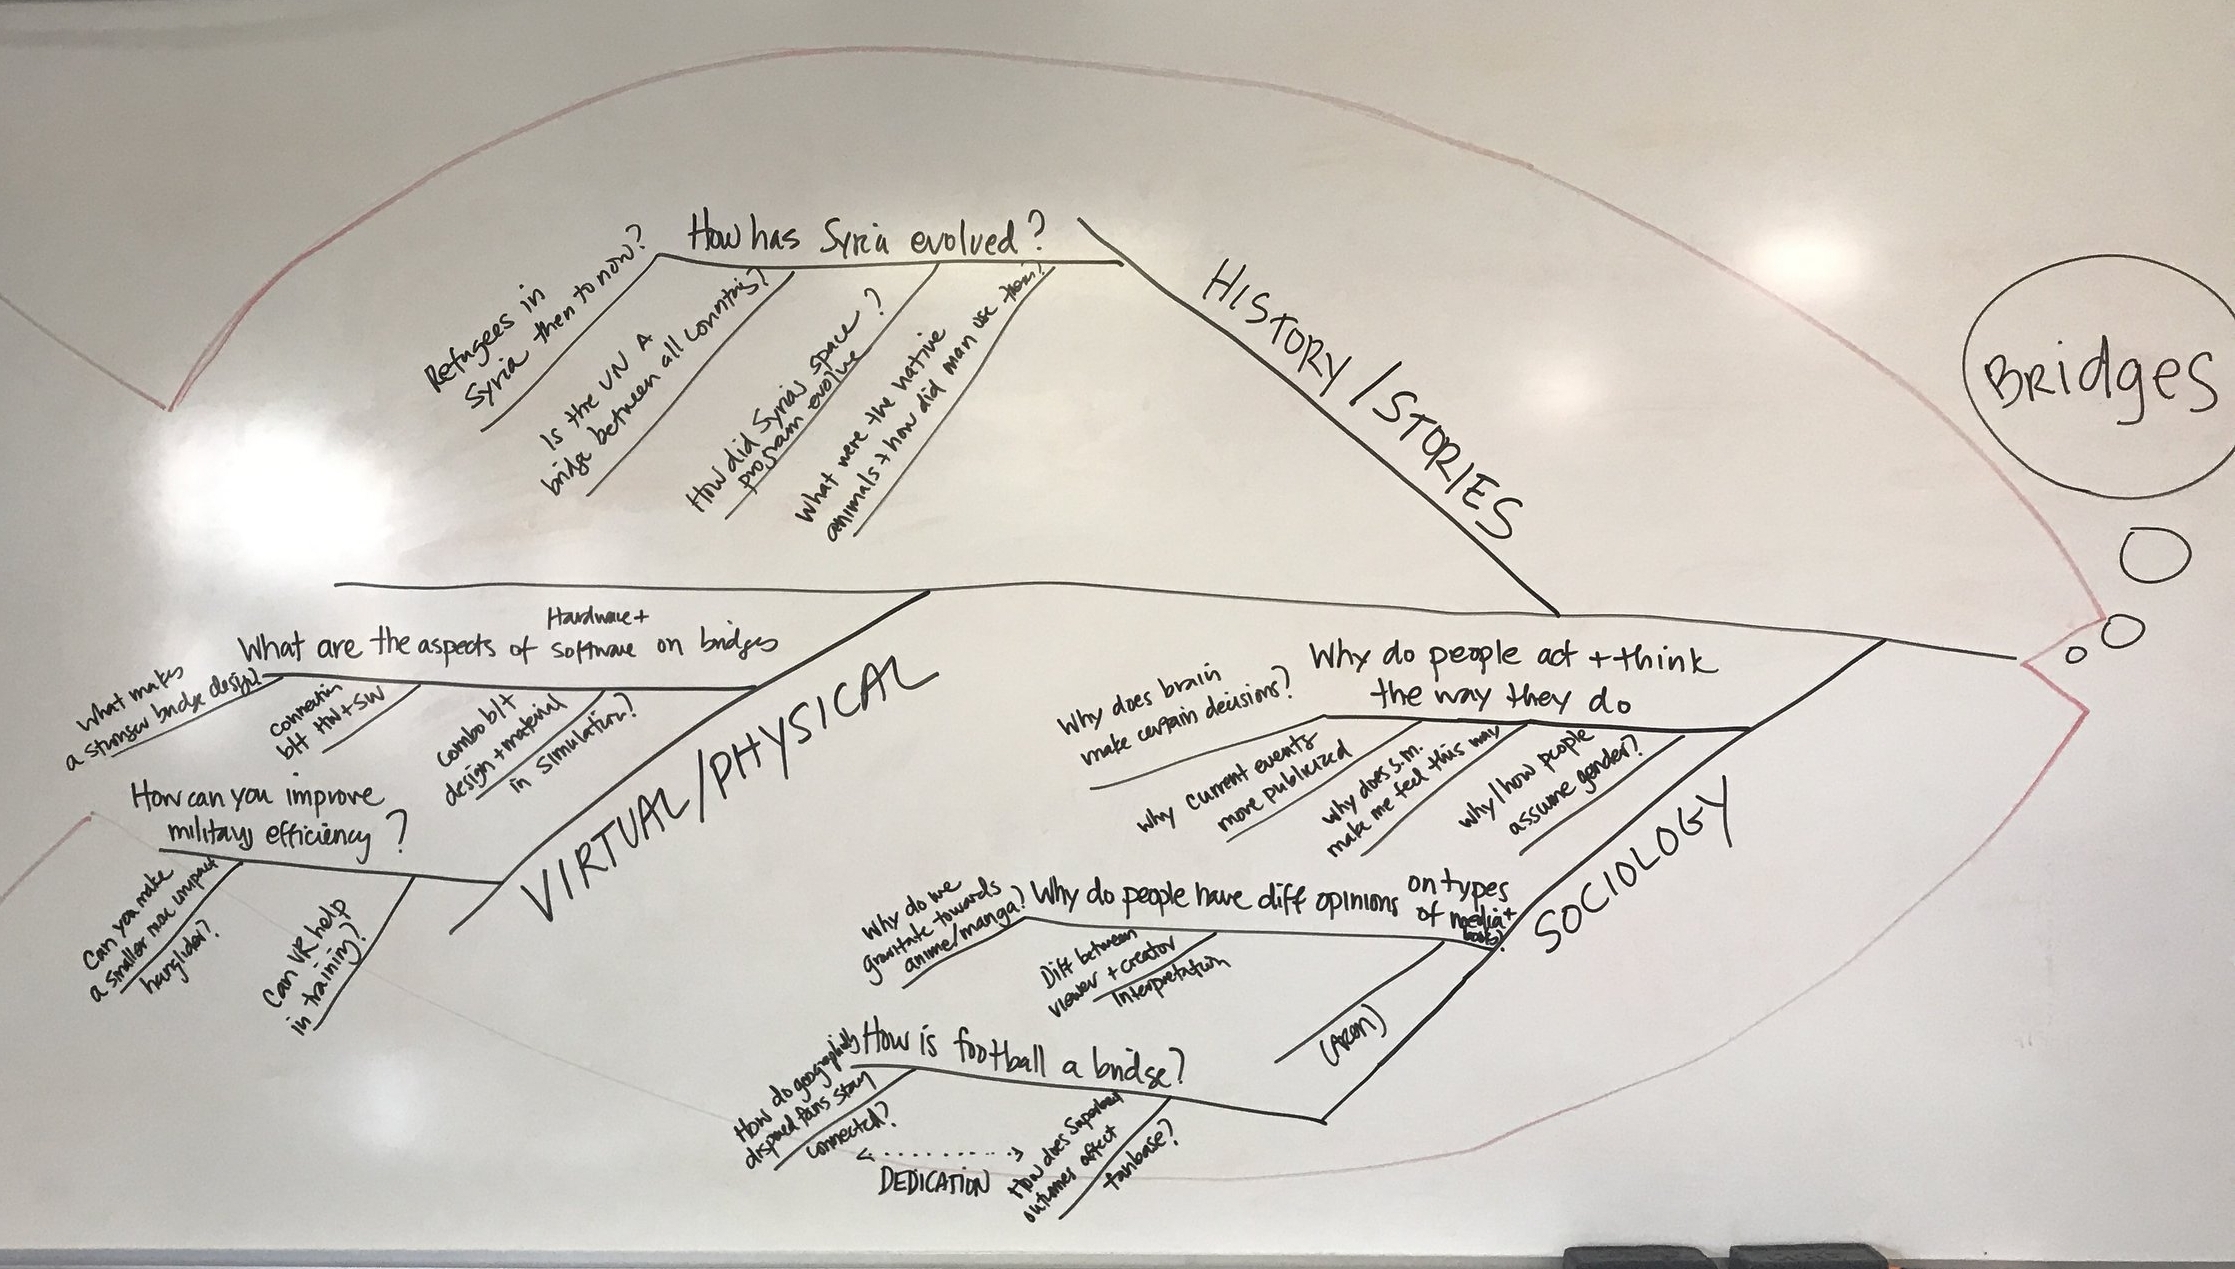 How has Syria evolved?
Refugees in
Syria then to now?
Is the UN A
bridge between all countries?
How did Syria's space
program evolve?
What were the native
animals + how did man use them?
HISTORY / STORIES
BRidges
What are the aspects of Hardware +
software on bridges
What makes
a stronger bridge design?
connection
b/t HW + SW
combo b/t
design + material
in simulation?
How can you improve
military efficiency?
Can you make
a smaller more compact
hanglider?
Can VR help
in training?
VIRTUAL/PHYSICAL
Why do people act + think
the way they do
Why does brain
make certain decisions?
Why current events
more publicized
why does s.m.
make me feel this way
why/how people
assume gender?
SOCIOLOGY
Why do people have diff opinions on types
of media +
books?
Why do we
gravitate towards
anime/manga?
Diff between
viewer + creator
Interpretation
(AREN)
How is football a bridge?
How do geographically
dispersed fans stay
connected?
DEDICATION
How does Superbowl
outcomes affect
fanbase?